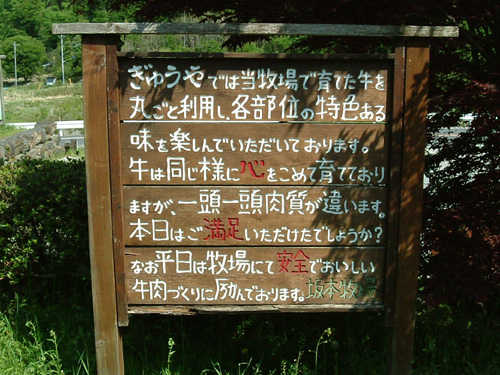 ぎゅうやでは当牧場で育てた牛を
丸ごと利用し、各部位の特色ある
味を楽しんでいただいております。
牛は同じ様に心をこめて育てており
ますが、一頭一頭肉質が違います。
本日はご満足いただけたでしょうか?
なお平日は牧場にて安全でおいしい
牛肉づくりに励んでおります。坂本牧場